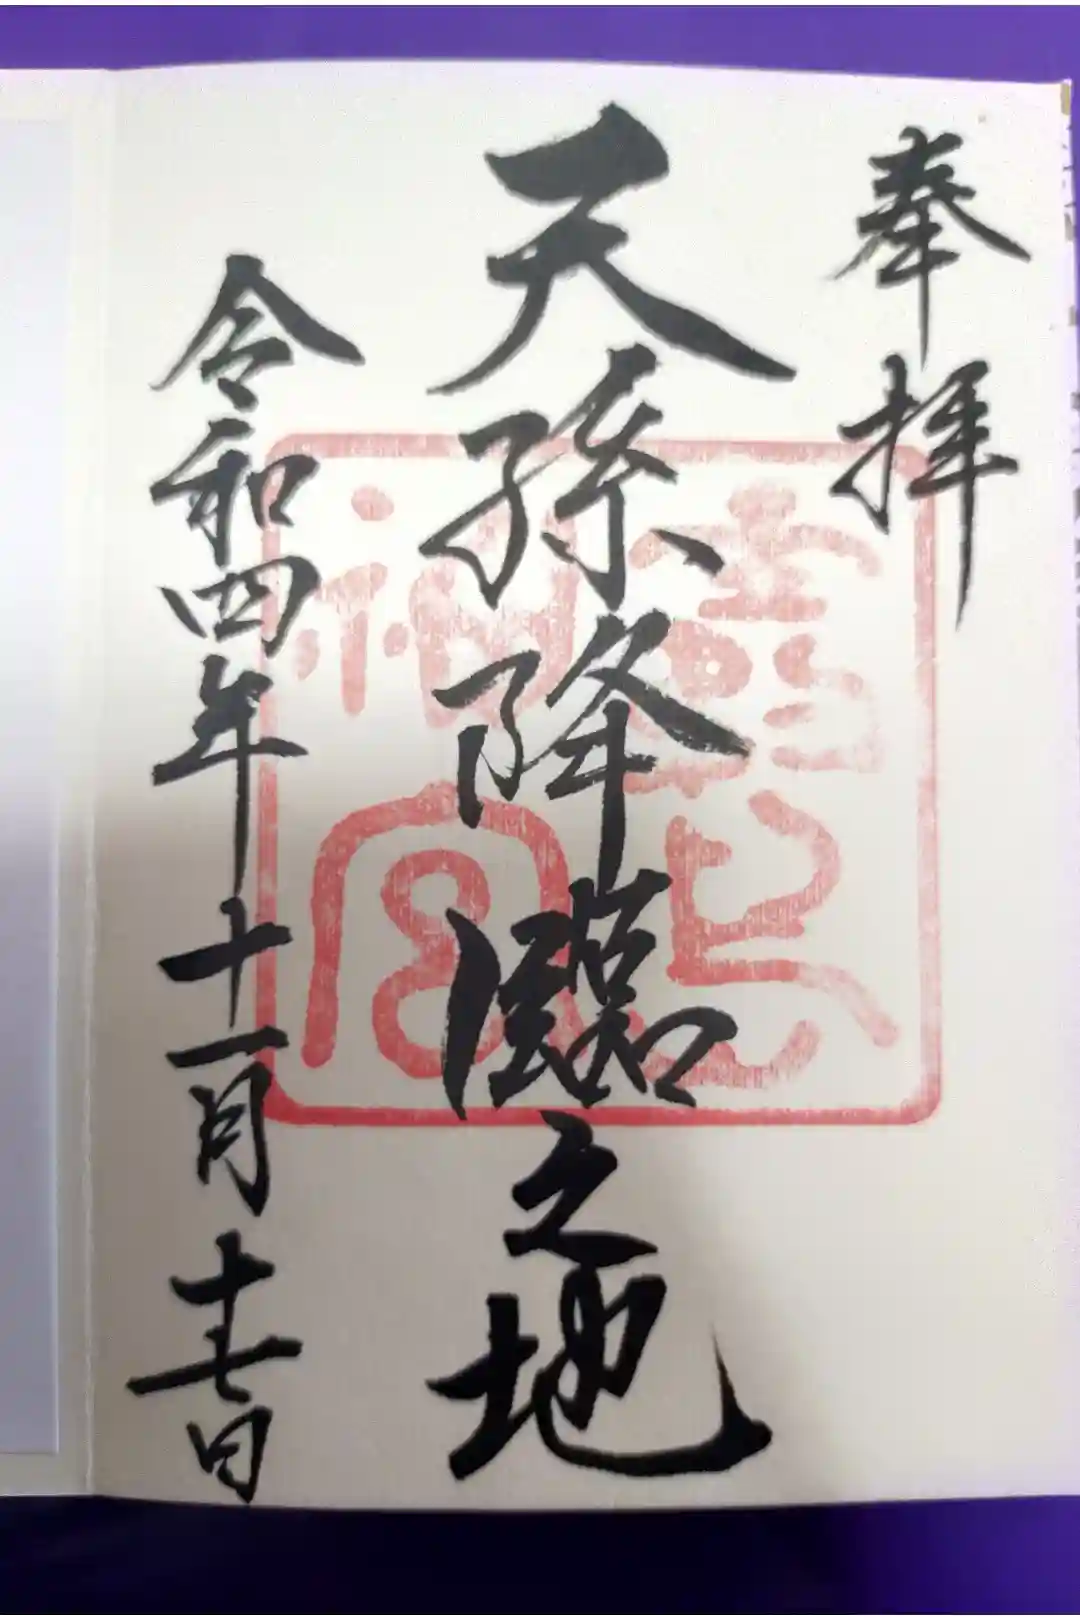 奉拝
天孫降臨之地
令和四年十一月十七日